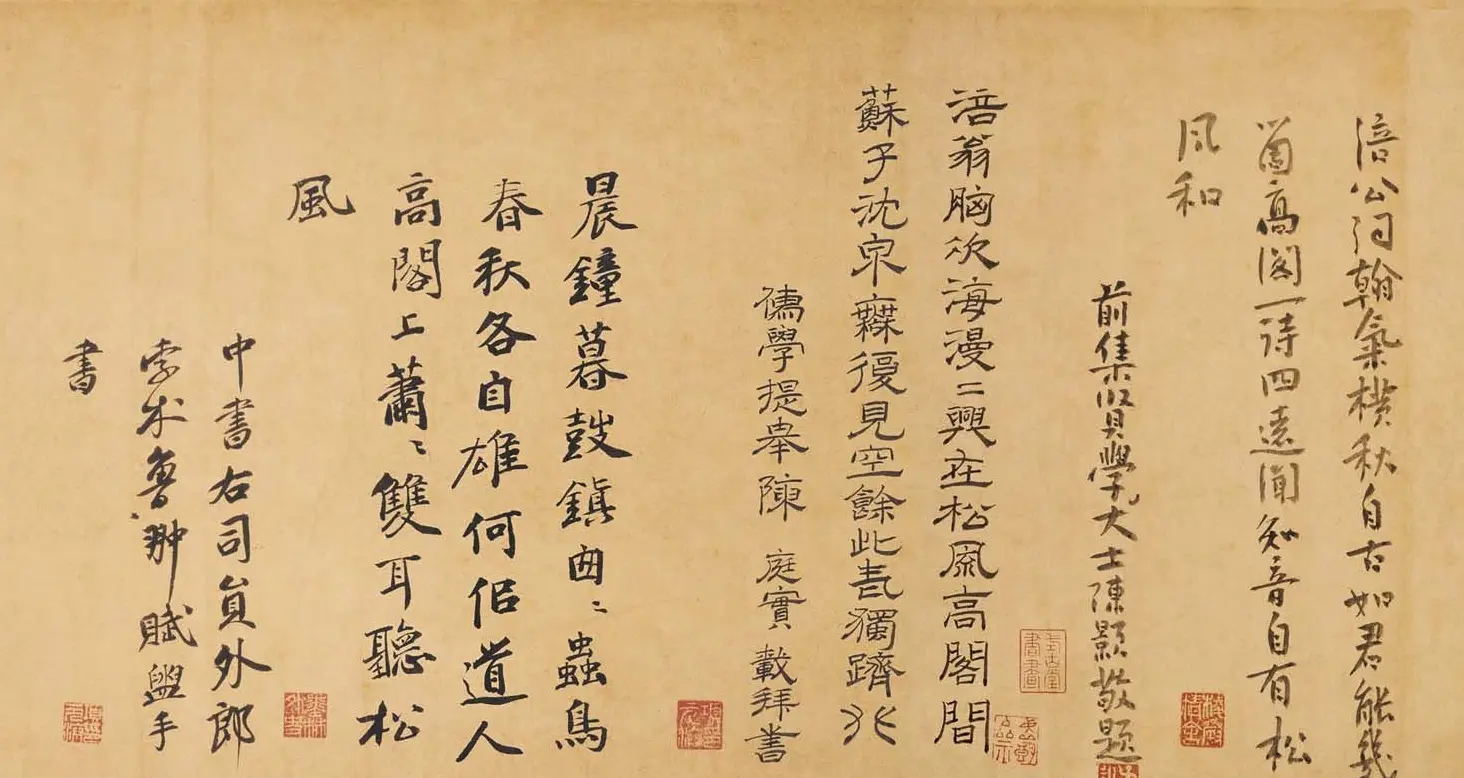 涪公詞翰氣橫秋自古如君能幾
留高閣一詩四遠聞知音自有松
風和
前集賢學大士陳顥敬題
涪翁胸次海漫〻興在松風高閣間
蘇子沈泉無復見空餘此老獨躋攀
儒學提舉陳庭實載拜書
晨鐘暮鼓鎮匆〻蟲鳥
春秋各自雄何侣道人
高閣上蕭〻雙耳聽松
風
中書右司員外郎
孛朮魯翀賦盥手
書